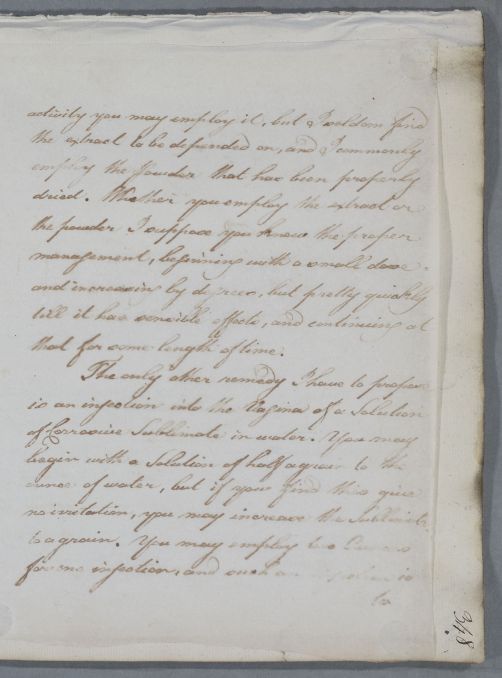 activity you may employ it, but I seldom find
the extract to be depended on, and I commonly
employ the Powder that has been properly
dried. Whether you employ the extract or
the powder I suppose you know the proper
management, beginning with a small dose
and increasing by degrees, but pretty quickly
till it has sensible effects, and continuing at
that for some length of time.
The only other remedy I have to propose
is an injection into the Vagina of a Solution
of Corrosive Sublimate in water. You may
begin with a Solution of half a grain to the
ounce of water, but if you find this give
no irritation, you may increase the Sublimate
to a grain. You may employ two Ounces
for one injection, and such an injection is
to
348